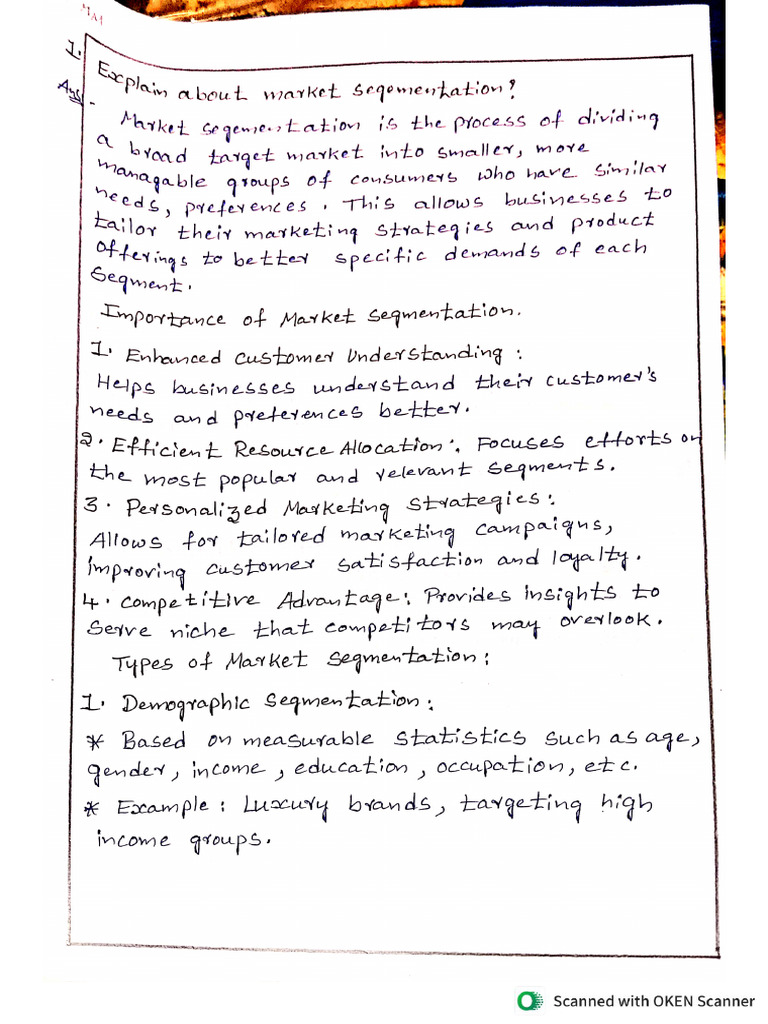 MM
1. Explain about market segomentation?
Ans -
Market segementation is the process of dividing
a broad target market into smaller, more
managable groups of consumers who have similar
needs, preferences. This allows businesses to
tailor their marketing strategies and product
offerings to better specific demands of each
segment.
Importance of Market segmentation.
1. Enhanced customer Understanding :
Helps businesses understand their customer's
needs and preferences better.
2. Efficient Resource Allocation:. Focuses efforts on
the most popular and relevant segments.
3. Personalized Marketing strategies:
Allows for tailored marketing campaigns,
improving customer satisfaction and loyalty.
4. competitive Advantage: Provides insights to
serve niche that competitors may overlook.
Types of Market segmentation:
1. Demographic segmentation:
* Based on measurable statistics such as age,
gender, income, education, occupation, etc.
* Example: Luxury brands, targeting high
income groups.
Scanned with OKEN Scanner